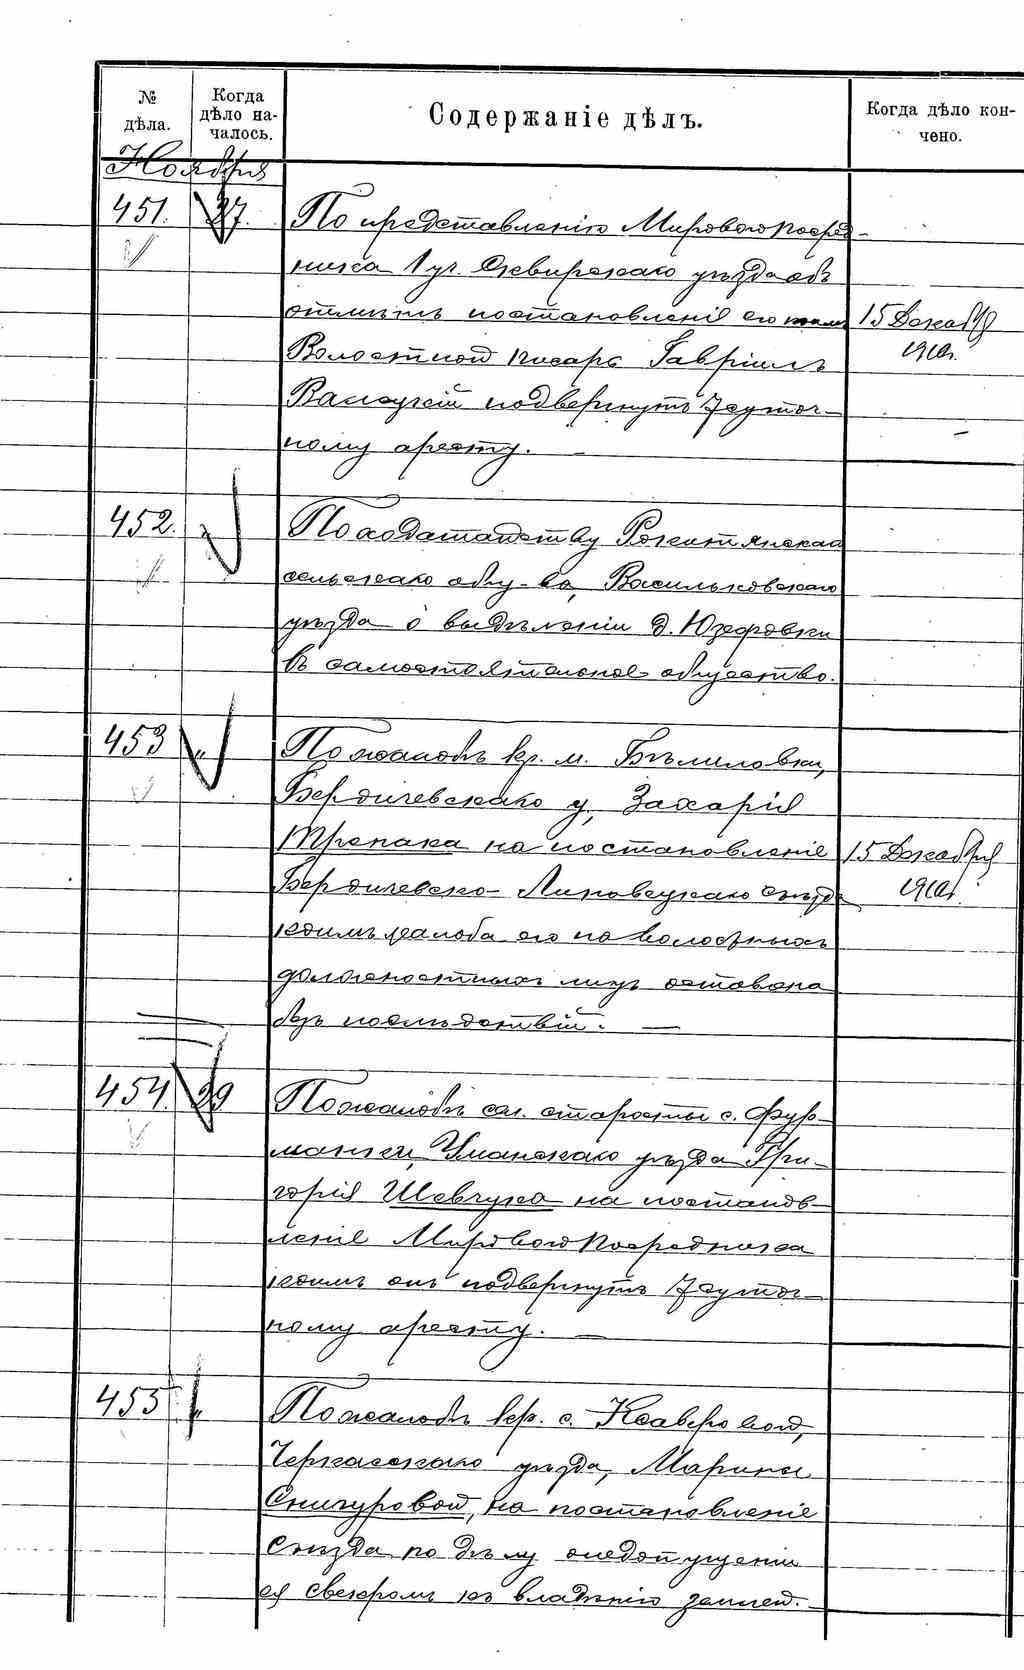 № дѣла.
Когда дѣло на-
чалось.
Содержаніе дѣлъ.
Когда дѣло кон-
чено.
Ноября
451. 27. По представленію Мирового посред-
ника 1 уч. Сквирскаго уѣзда объ
отмѣнѣ постановленія его коимъ
Волостной писарь Гавріилъ
подвергнутъ 7 суточ-
ному аресту. —
15 Декабря
1910г.
452. По ходатайству
сельскаго общ-ва, Васильковскаго
уѣзда о выдѣленіи д. Юзефовки
въ самостоятельное общество.
453 " По жалобѣ кр. м. Бѣлиловки,
Бердичевскаго у, Захарія
Трепака на постановленіе
Бердичевско-Липовецкаго съѣзда
коимъ жалоба его на волостныхъ
должностныхъ лицъ оставлена
безъ послѣдствій. —
15 Декабря
1910г.
454. 29 По жалобѣ сел. старосты с. Фур-
манки, Уманскаго уѣзда Гри-
горія Шевчука на постанов-
леніе Мирового Посредника
коимъ онъ подвергнутъ 7 суточ-
ному аресту. —
455 " По жалобѣ кр. с. Ксаверовой,
Черкасскаго уѣзда, Марины
Снигуровой, на постановленіе
Съѣзда по дѣлу о недопущеніи
ея свекромъ къ владѣнію землей. —